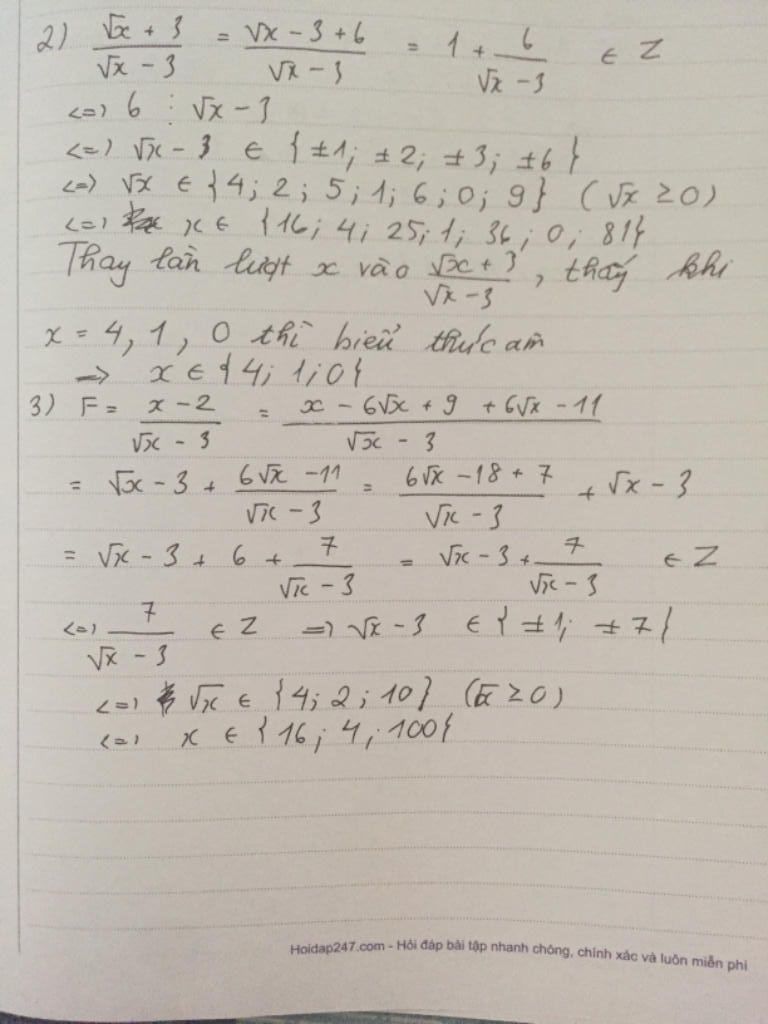 2) (√x + 3)/(√x − 3) = (√x − 3 + 6)/(√x − 3) = 1 + 6/(√x − 3) ∈ Z
<=> 6 ⋮ √x − 3
<=> √x − 3 ∈ {±1; ±2; ±3; ±6}
<=> √x ∈ {4; 2; 5; 1; 6; 0; 9} (√x ≥ 0)
<=> x ∈ {16; 4; 25; 1; 36; 0; 81}
Thay lần lượt x vào (√x + 3)/(√x − 3), thấy khi
x = 4, 1, 0 thì biểu thức âm
→ x ∈ {4; 1; 0}
3) F = (x − 2)/(√x − 3) = (x − 6√x + 9 + 6√x − 11)/(√x − 3)
= √x − 3 + (6√x − 11)/(√x − 3) = (6√x − 18 + 7)/(√x − 3) + √x − 3
= √x − 3 + 6 + 7/(√x − 3) = √x − 3 + 7/(√x − 3) ∈ Z
<=> 7/(√x − 3) ∈ Z => √x − 3 ∈ {±1; ±7}
<=> √x ∈ {4; 2; 10} (√x ≥ 0)
<=> x ∈ {16; 4; 100}
Hoidap247.com - Hỏi đáp bài tập nhanh chóng, chính xác và luôn miễn phí